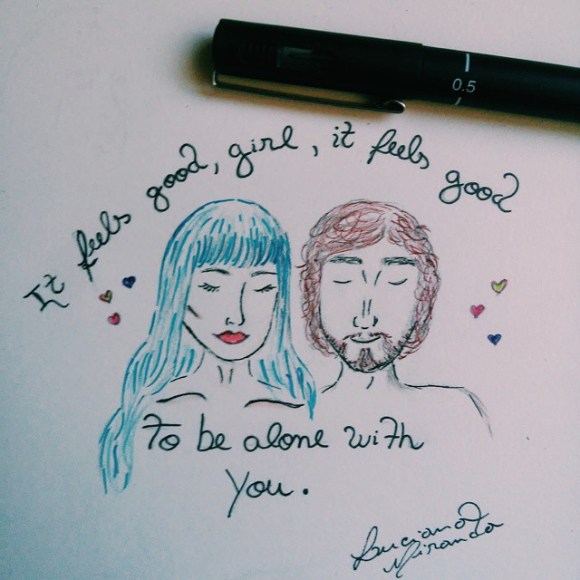 0.5
It feels good, girl, it feels good
To be alone with
you.
Luciana
Miranda